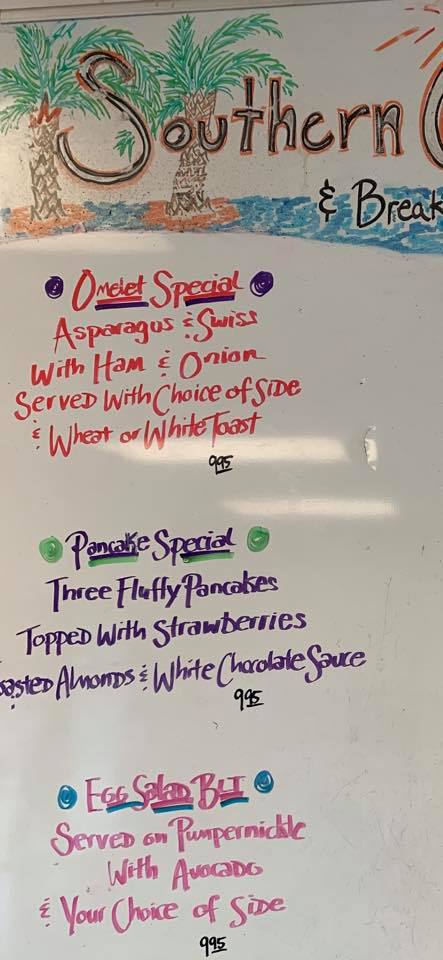 Southern
& Break
Omelet Special
Asparagus & Swiss
With Ham & Onion
Served With Choice of Side
& Wheat or White Toast
995
Pancake Special
Three Fluffy Pancakes
Topped With Strawberries
oasted Almonds & White Chocolate Sauce
995
Egg Salad BLT
Served on Pumpernickle
With Avocado
& Your Choice of Side
995